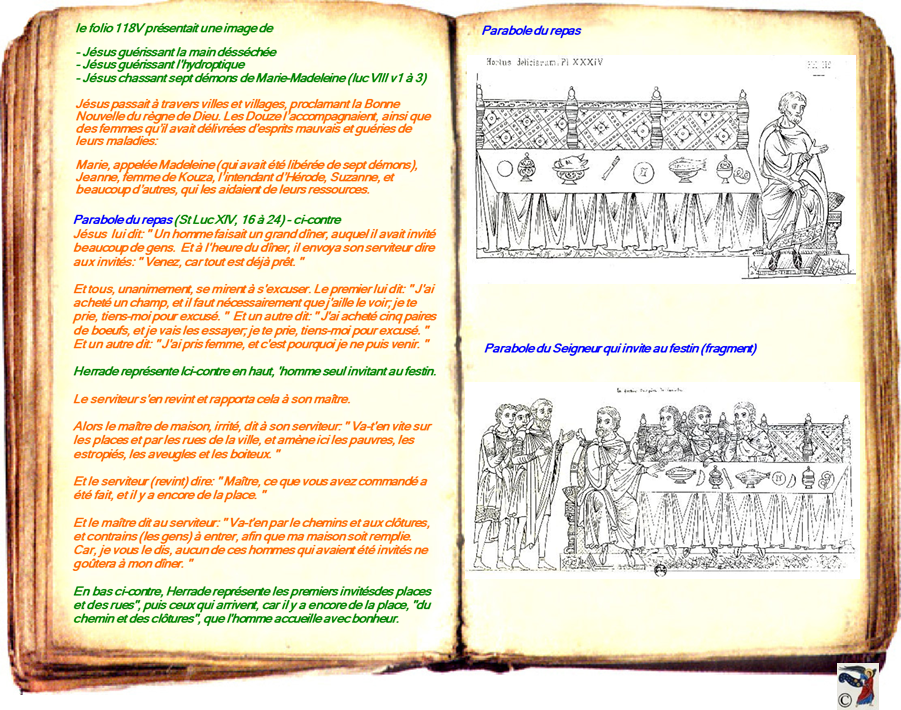 le folio 118V présentait une image de
- Jésus guérissant la main désséchée
- Jésus guérissant l'hydroptique
- Jésus chassant sept démons de Marie-Madeleine (luc VIII v1 à 3)
Jésus passait à travers villes et villages, proclamant la Bonne
Nouvelle du règne de Dieu. Les Douze l'accompagnaient, ainsi que
des femmes qu'il avait délivrées d'esprits mauvais et guéries de
leurs maladies:
Marie, appelée Madeleine (qui avait été libérée de sept démons),
Jeanne, femme de Kouza, l'intendant d'Hérode, Suzanne, et
beaucoup d'autres, qui les aidaient de leurs ressources.
Parabole du repas (St Luc XIV, 16 à 24) - ci-contre
Jésus lui dit: " Un homme faisait un grand dîner, auquel il avait invité
beaucoup de gens. Et à l'heure du dîner, il envoya son serviteur dire
aux invités: " Venez, car tout est déjà prêt. "
Et tous, unanimement, se mirent à s'excuser. Le premier lui dit: " J'ai
acheté un champ, et il faut nécessairement que j'aille le voir; je te
prie, tiens-moi pour excusé. " Et un autre dit: " J'ai acheté cinq paires
de boeufs, et je vais les essayer; je te prie, tiens-moi pour excusé. "
Et un autre dit: " J'ai pris femme, et c'est pourquoi je ne puis venir. "
Herrade représente Ici-contre en haut, 'homme seul invitant au festin.
Le serviteur s'en revint et rapporta cela à son maître.
Alors le maître de maison, irrité, dit à son serviteur: " Va-t'en vite sur
les places et par les rues de la ville, et amène ici les pauvres, les
estropiés, les aveugles et les boiteux. "
Et le serviteur (revint) dire: " Maître, ce que vous avez commandé a
été fait, et il y a encore de la place. "
Et le maître dit au serviteur: " Va-t'en par le chemins et aux clôtures,
et contrains (les gens) à entrer, afin que ma maison soit remplie.
Car, je vous le dis, aucun de ces hommes qui avaient été invités ne
goûtera à mon dîner. "
En bas ci-contre, Herrade représente les premiers invitésdes places
et des rues", puis ceux qui arrivent, car il y a encore de la place, "du
chemin et des clôtures", que l'homme accueille avec bonheur.
Parabole du repas
Hortus deliciarum. Pl XXXIV
Parabole du Seigneur qui invite au festin (fragment)
©